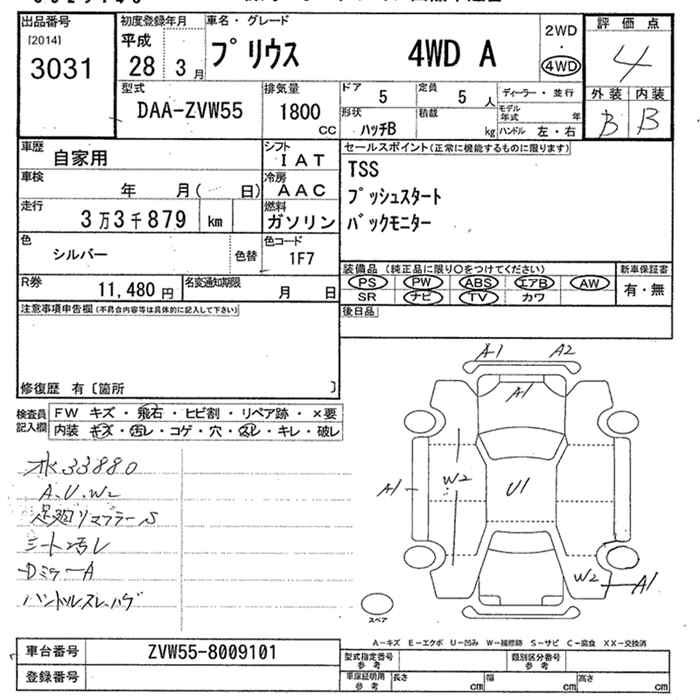 出品番号
[2014]
3031
初度登録年月
平成
28 3月
車名・グレード
プリウス 4WD A
2WD
・
4WD
評価点
4
外装 内装
B B
型式
DAA-ZVW55
排気量
1800
CC
ドア 5
定員 5 人
形状 ハッチB
積載 kg
ディーラー・並行
モデル年式 年
ハンドル 左・右
車歴 自家用
シフト IAT
車検 年 月( 日)
冷房 AAC
走行 3万3千879 km
燃料 ガソリン
色 シルバー 色替
色コード 1F7
R券 11,480円
名変通知期限 月 日
セールスポイント(正常に機能するものに限ります)
TSS
プッシュスタート
バックモニター
装備品 (純正品に限り○をつけてください)
PS PW ABS エアB AW
SR ナビ TV カワ
新車保証書
有・無
後日品
注意事項申告欄(不具合内容等は具体的に記入して下さい)
修復歴 有 [箇所 ]
検査員記入欄
FW キズ・飛石・ヒビ割・リペア跡・×要
内装 キズ・汚レ・コゲ・穴・スレ・キレ・破レ
33880
A.U.W2
シート汚レ
A1 A2
A1
A1 W2 U1
W2 A1
スペア
A-キズ E-エクボ U-凹み W-補修跡 S-サビ C-腐食 XX-交換済
車台番号 ZVW55-8009101
登録番号
型式指定番号 参考
類別区分番号 参考
車庫証明用 参考
長さ cm 幅 cm 高さ cm